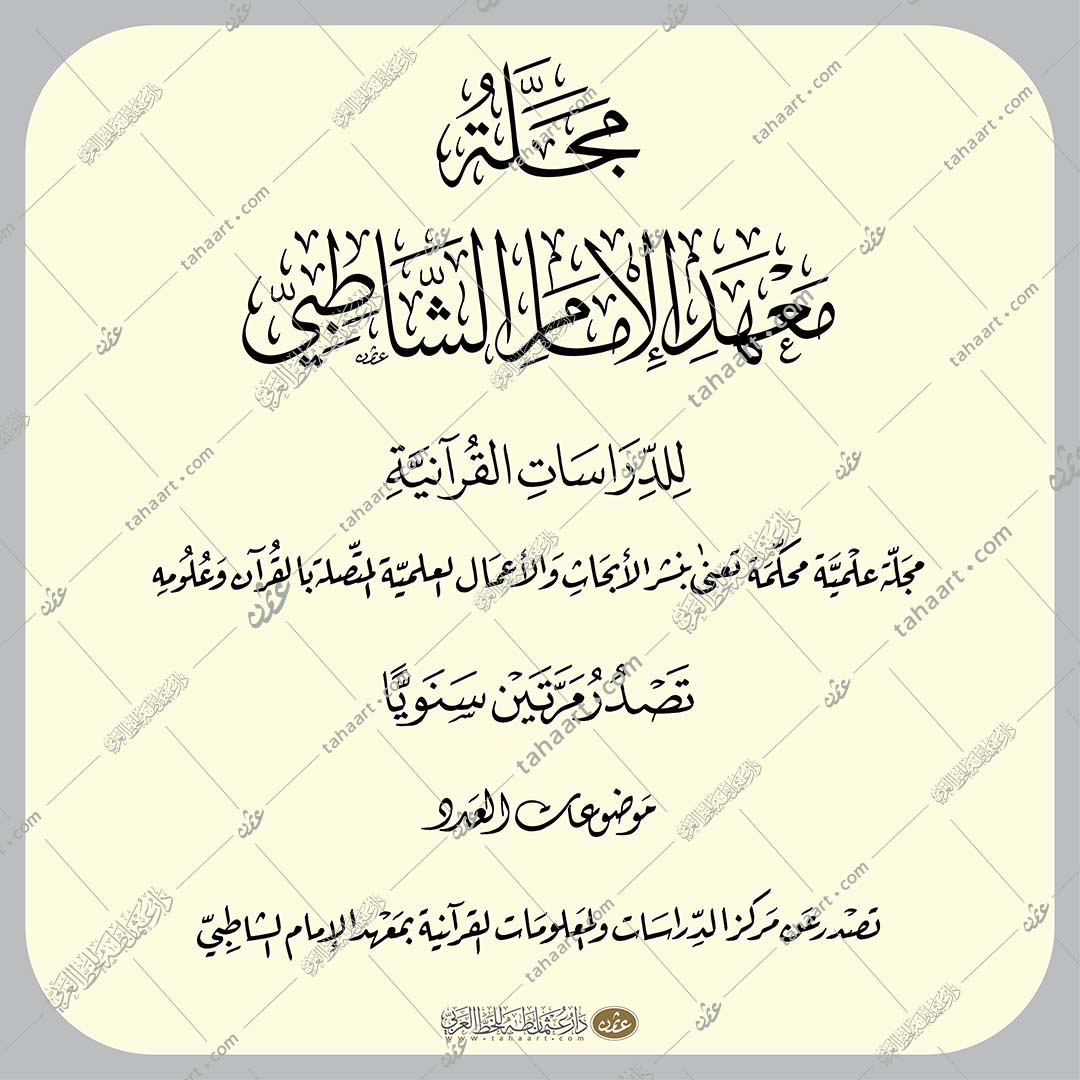 مَجَلَّةُ
مَعْهَدِ الْإِمَامِ الشَّاطِبِيِّ
لِلدِّرَاسَاتِ القُرآنِيَّةِ
مجَلّة علْميَّة محكّمَة تعنىٰ بنشر الأبحَاثِ وَالأعمَال العلميّة المتّصلة بالقُرآن وَعُلُومِهِ
تَصْدُرُ مَرَّتَيْن سَنَويًّا
مَوضوعات العَدد
تصْدر عَن مَركز الدِّراسَات والمعَلومَات القرآنية بمَعْهد الإمام الشاطِبيّ
عثمان دار عثمان طه للخط العربي
www.tahaart.com